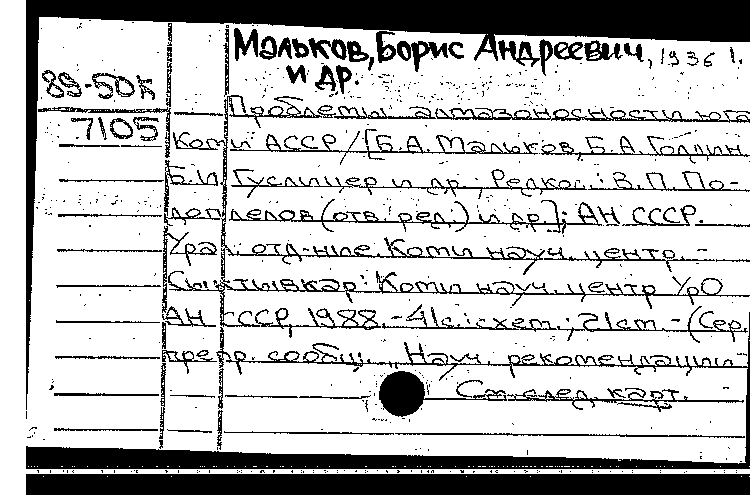 Мальков, Борис Андреевич, 1936 г.
и др.
89-50к
7105
Проблемы алмазоносности юга
Коми АССР / [Б.А. Мальков, Б.А. Голдин,
Б.И. Гуслицер и др.; Редкол.: В.П. По-
доплелов (отв. ред.) и др.]; АН СССР.
Урал. отд-ние. Коми науч. центр. -
Сыктывкар: Коми науч. центр УрО
АН СССР, 1988. - 41 с.: схем.; 21 см. - (Сер.
препр. сообщ. "Науч. рекомендации -
См. след. карт.